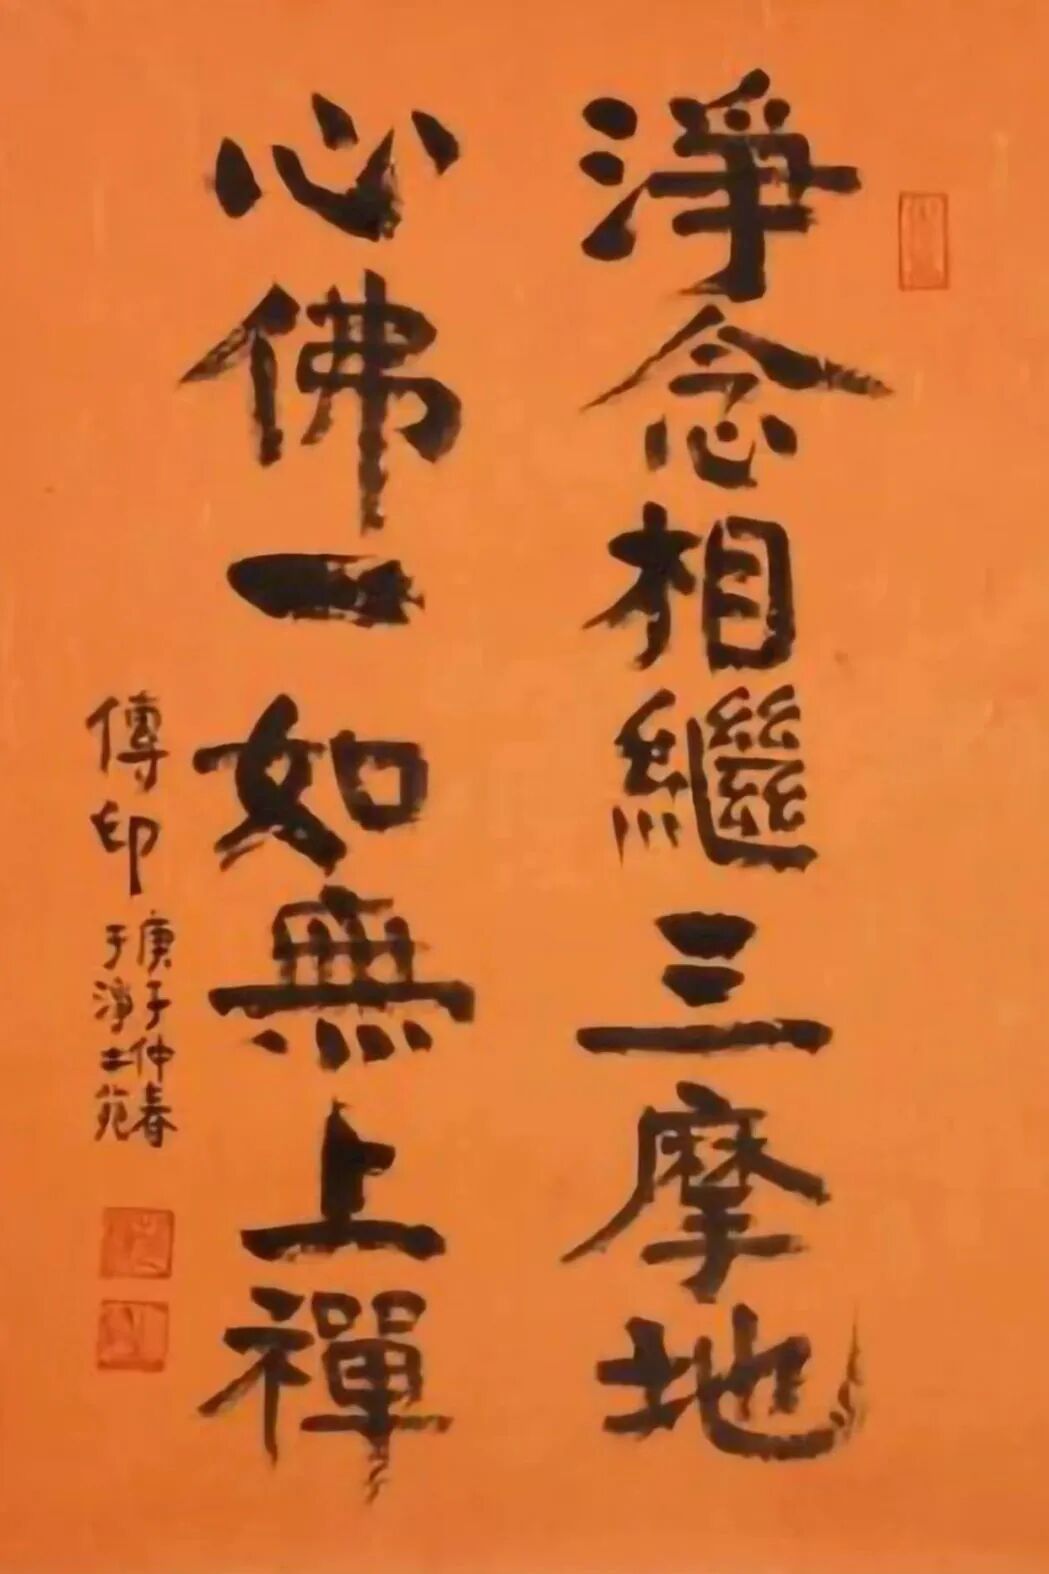 淨念相繼三摩地
心佛一如無上禪
傳印
庚子仲春
于淨土苑